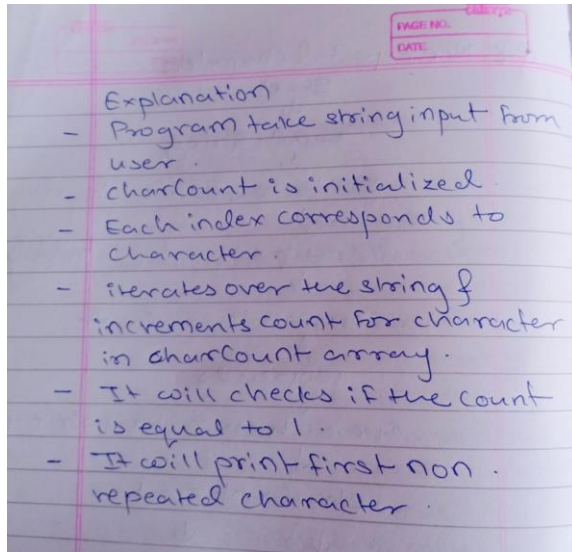 PAGE NO.
DATE
Explanation
- Program take string input from
user.
- charCount is initialized.
- Each index corresponds to
character.
- iterates over the string &
increments count for character
in charCount array.
- It will checks if the count
is equal to 1.
- It will print first non.
repeated character.